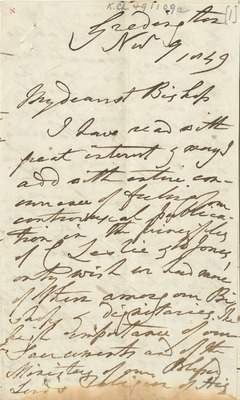 [1]
Gredington
Nov 9 1849
My dearest Bishop
I have read with
great interest & may I
add with entire con-
currence of feeling your
controversial publica-
tion in the principles
of Leslie & Jones
only wish we had more
of them among our Bi-
shops & dignitaries. The
high importance of our
Sacraments and of the
Ministry of our Blessed
Lord's Religion of His